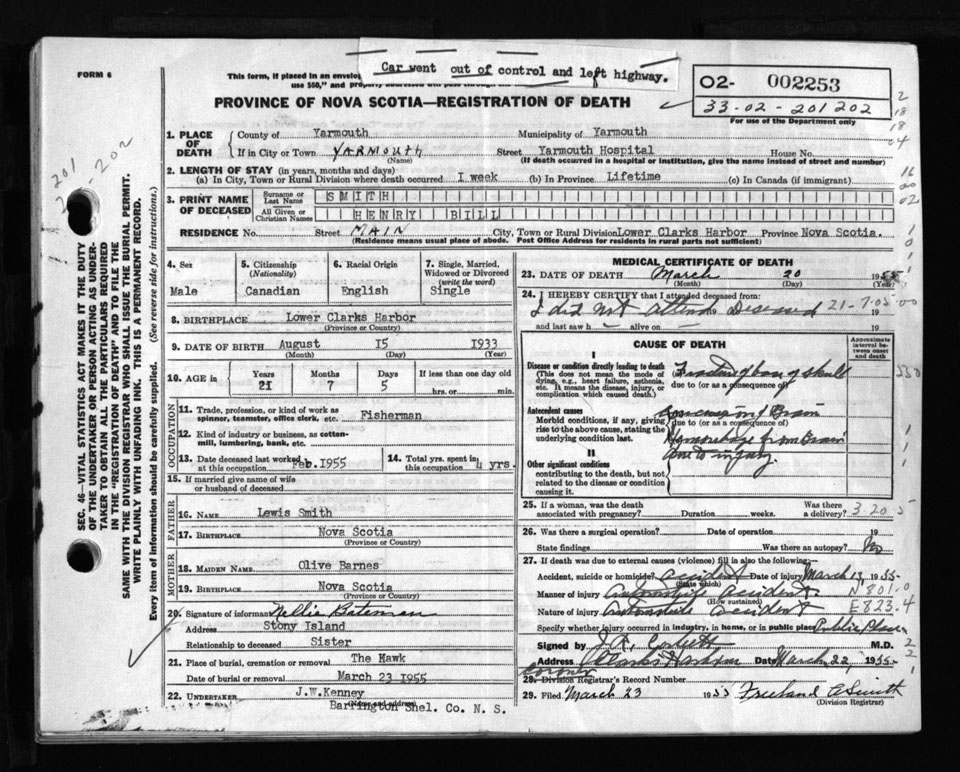 FORM 6
This form, if placed in an envelop
Car went out of control and left highway.
use $50," and
O2- 002253
33-02-201202
For use of the Department only
PROVINCE OF NOVA SCOTIA—REGISTRATION OF DEATH
1. PLACE OF DEATH
County of Yarmouth Municipality of Yarmouth
If in City or Town YARMOUTH Street Yarmouth Hospital House No.
(Name) (If death occurred in a hospital or institution, give the name instead of street and number)
2. LENGTH OF STAY (in years, months and days)
(a) In City, Town or Rural Division where death occurred 1 week (b) In Province Lifetime (c) In Canada (if immigrant)
3. PRINT NAME OF DECEASED
Surname or Last Name SMITH
All Given or Christian Names HENRY BILL
RESIDENCE No. Street MAIN City, Town or Rural Division Lower Clarks Harbor Province Nova Scotia.
(Residence means usual place of abode. Post Office Address for residents in rural parts not sufficient)
4. Sex
Male
5. Citizenship (Nationality)
Canadian
6. Racial Origin
English
7. Single, Married, Widowed or Divorced (write the word)
Single
8. BIRTHPLACE Lower Clarks Harbor
(Province or Country)
9. DATE OF BIRTH August 15 1933
(Month) (Day) (Year)
10. AGE in Years Months Days If less than one day old
21 7 5 hrs. or min.
OCCUPATION
11. Trade, profession, or kind of work as spinner, teamster, office clerk, etc. Fisherman
12. Kind of industry or business, as cotton-mill, lumbering, bank, etc.
13. Date deceased last worked at this occupation Feb. 1955
14. Total yrs. spent in this occupation 4 yrs.
15. If married give name of wife or husband of deceased
FATHER
16. Name Lewis Smith
17. Birthplace Nova Scotia
(Province or Country)
MOTHER
18. Maiden Name Olive Barnes
19. Birthplace Nova Scotia
(Province or Country)
20. Signature of informant Nellie Bateman
Address Stony Island
Relationship to deceased Sister
21. Place of burial, cremation or removal The Hawk
Date of burial or removal March 23 1955
22. Undertaker J.W.Kenney
(Name and address)
Barrington Shel. Co. N. S.
MEDICAL CERTIFICATE OF DEATH
23. DATE OF DEATH March 20 1955
(Month) (Day) (Year)
24. I HEREBY CERTIFY that I attended deceased from:
I did not attend Deceased 21-7-05-00
and last saw h alive on 19
CAUSE OF DEATH
Approximate interval between onset and death
I
Disease or condition directly leading to death
(This does not mean the mode of dying, e.g., heart failure, asthenia, etc. It means the disease, injury, or complication which caused death.)
(a) Fracture of base of skull
due to (or as a consequence of)
Antecedent causes
Morbid conditions, if any, giving rise to the above cause, stating the underlying condition last.
of Brain
due to (or as a consequence of)
Hemorrhage from Brain
due to injury.
II
Other significant conditions
contributing to the death, but not related to the disease or condition causing it.
25. If a woman, was the death associated with pregnancy? Duration weeks. Was there a delivery?
26. Was there a surgical operation? Date of operation 19
State findings Was there an autopsy? No
27. If death was due to external causes (violence) fill in also the following:
Accident, suicide or homicide? accident Date of injury March 13, 1955
(State which)
Manner of injury Automobile accident N 801.0
(How sustained)
Nature of injury Automobile accident E 823.4
Specify whether injury occurred in industry, in home, or in public place Public Place
Signed by M.D.
Address Clarks Harbour Date March 22, 1955
coroner
28. Division Registrar's Record Number
29. Filed March 23 1955 Freeland A Smith
(Division Registrar)
SEC. 46—VITAL STATISTICS ACT MAKES IT THE DUTY OF THE UNDERTAKER OR PERSON ACTING AS UNDERTAKER TO OBTAIN ALL THE PARTICULARS REQUIRED IN THE "REGISTRATION OF DEATH" AND TO FILE THE SAME WITH THE DIVISION REGISTRAR WHO SHALL ISSUE THE BURIAL PERMIT.
WRITE PLAINLY WITH UNFADING INK. THIS IS A PERMANENT RECORD.
Every item of information should be carefully supplied. (See reverse side for instructions.)
201
202